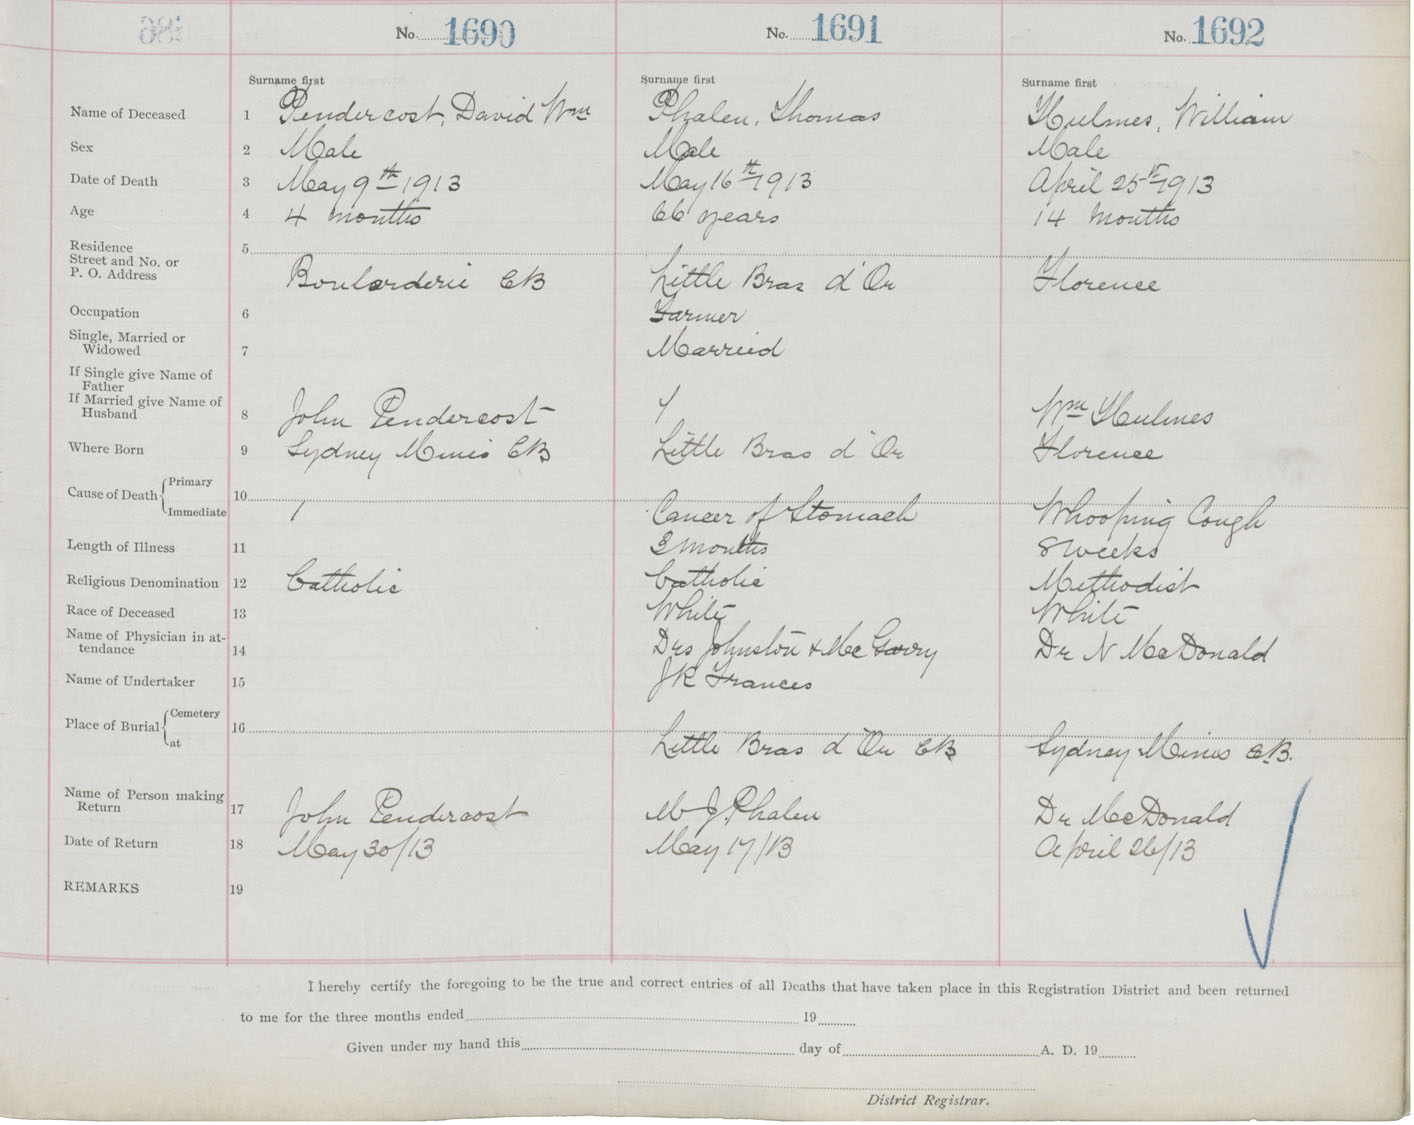 No. 1690 No. 1691 No. 1692
Surname first Surname first Surname first
Name of Deceased 1 Pendercost, David Wm Phalen, Thomas Hulmes, William
Sex 2 Male Male Male
Date of Death 3 May 9th 1913 May 16th 1913 April 25th 1913
Age 4 4 months 66 years 14 months
Residence 5
Street and No. or
P. O. Address Boularderie CB Little Bras d'Or Florence
Occupation 6 Farmer
Single, Married or
Widowed 7 Married
If Single give Name of
Father
If Married give Name of
Husband 8 John Pendercost Wm Hulmes
Where Born 9 Sydney Mines CB Little Bras d'Or Florence
Cause of Death Primary
10
Immediate Cancer of Stomach Whooping Cough
Length of Illness 11 3 months 8 weeks
Religious Denomination 12 Catholic Catholic Methodist
Race of Deceased 13 White White
Name of Physician in at-
tendance 14 Drs Johnston & Dr N McDonald
Name of Undertaker 15 J R Frances
Place of Burial Cemetery
16
at Little Bras d'Or CB Sydney Mines CB.
Name of Person making
Return 17 John Pendercost M J Phalen Dr McDonald
Date of Return 18 May 30/13 May 17/13 April 26/13
REMARKS 19
I hereby certify the foregoing to be the true and correct entries of all Deaths that have taken place in this Registration District and been returned
to me for the three months ended 19
Given under my hand this day of A. D. 19
District Registrar.